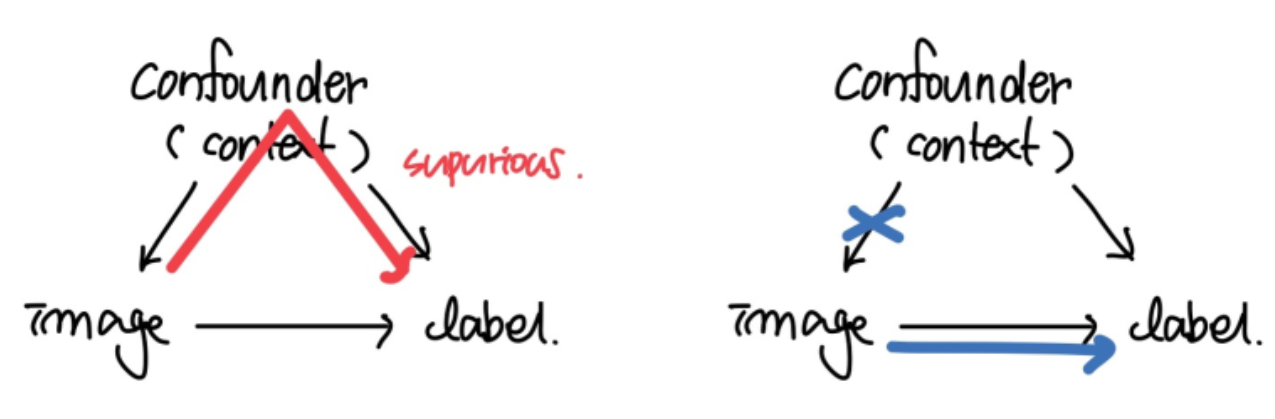 Confounder
( context )
supurious.
image
label.
Confounder
( context )
image
label.